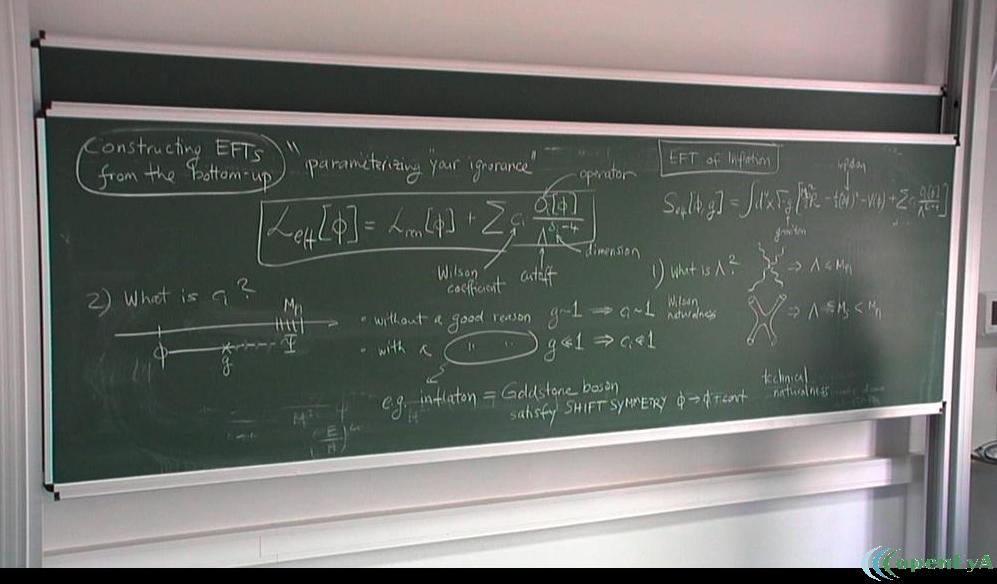 Constructing EFTs
from the bottom-up
"parameterizing "your ignorance"
L_eff[ϕ] = L_ren[ϕ] + Σ c_i O_i[ϕ] / Λ^(δ_i-4)
operator
dimension
cutoff
Wilson
coefficient
EFT of Inflation
inflaton
S_eff[ϕ,g] = ∫d⁴x √-g [
graviton
1) What is Λ?
⇒ Λ ≤ M_pl
⇒ Λ ≲ M_s < M_pl
2) What is c_i?
M_pl
ϕ
g
Ψ
• without a good reason g~1 ⇒ c_i~1 Wilson
naturalness
• with a " " g≪1 ⇒ c_i≪1
e.g. inflaton = Goldstone boson
satisfy SHIFT SYMMETRY ϕ → ϕ + const
technical
naturalness
CapenLyA